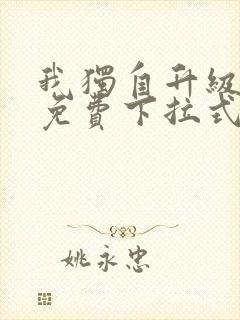 我獨自升級
免費下拉式
姚永忠